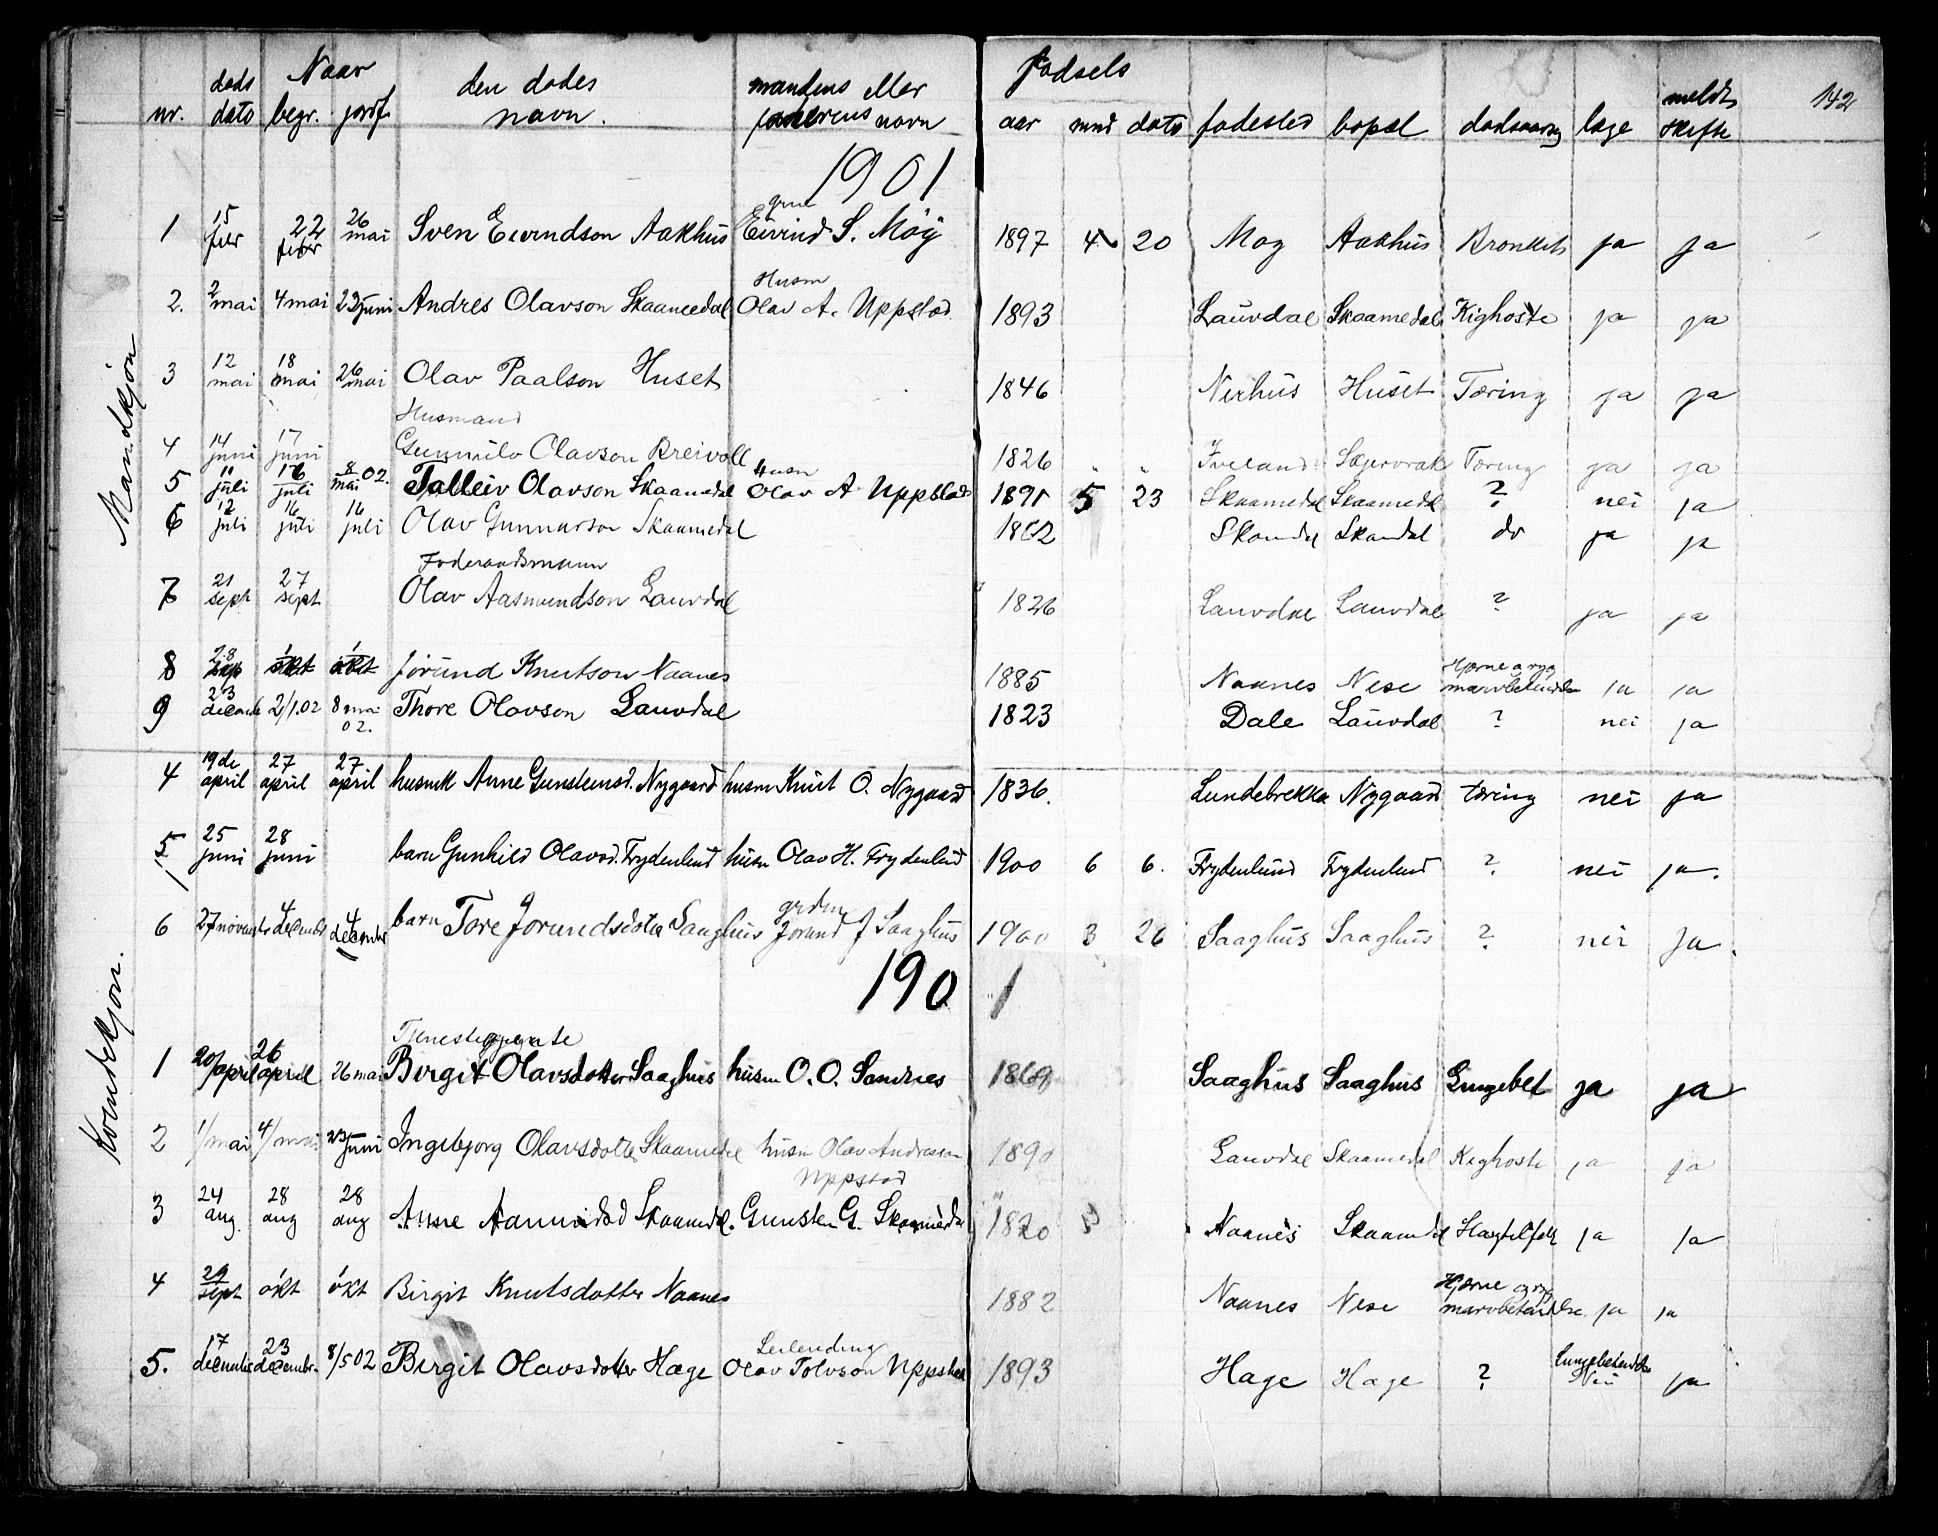 142
Naar fødsels
nr. døds dato begr. jordf. den dødes navn. mandens eller faderens navn aar mnd dato fødested bopæl dødsaarsag læge meldt skifte
Mandkjøn
1901
1 15 febr 22 febr 26 mai Sven Eivindson Aakhus grm Eivind S. Möÿ 1897 4 20 Moy Aakhus Bronkit ja ja
2. 2 mai 4 mai 23 juni Andres Olavson Skaamedal Husm Olav A. Uppstad 1893 Lauvdal Skaamedal Kighoste ja ja
3 12 mai 18 mai 26 mai Olav Paalson Huset 1846 Nerhus Huset Tæring ja ja
Husmand
4 14 juni 17 juni Gunnulv Olavson Breivoll 1826 " " Iveland Tæring ja ja
5 11 juli 16 juli 8 mai 02. Talleiv Olavson Skaamedal Husm Olav A. Uppstad 1891 5 23 Skaamedal Skaamedal ? nei ja
6 12 juli 16 juli 16 juli Olav Gunnarson Skaamedal 1862 Skomdal Skamdal do ja ja
Foderaadsmann
7 21 sept 27 sept Olav Aasmundson Lauvdal 1826 Lauvdal Lauvdal ? ja ja
8 28 sep 1 okt 1 okt Jørund Knutson Naanes 1885 Naanes Nese Hjerne og ryg marvbetændelse ja ja
9 23 decemb 2/1.02 8 mai 02. Thore Olavson Lauvdal 1823 Dale Lauvdal ? nei ja
4 19de april 27 april 27 april husmk Anne Gunsteinsd. Nygaard husm Knut O. Nygaard 1836. Lundebrekka Nygaard tæring nei ja
5 25 juni 28 juni barn Gunhild Olavsd. Frydenlund husm Olav H. Frydenlund 1900 6 6. Frydenlund Frydenlund ? nei ja.
6 27 november 4 decembr 4 december barn Tore Jorundsdotter Saaghus grdm Jorund J Saaghus 1900 3 26 Saaghus Saaghus ? nei Ja.
Kvindekjøn.
1901
Tjenestegjente
1 20/april 26 april 26 mai Birgit Olavsdotter Saaghus husm O. O. Sandnes 1869 Saaghus Saaghus Lungebet ja ja
2 1/mai 4/mai 23 juni Ingebjørg Olavsdotter Skaamedal husm Olav Andresson Uppstad 1890 Lauvdal Skaamedal Kighoste ja ja
3 24 aug. 28 aug 28 aug Anne Skaamdal. Gunstein G. Skaamedal 1820 Naanes Skaamdal ja ja
4 29 sept 1 okt 1 okt Birgit Knutsdotter Naanes 1882 Naanes Nese Hjerne og ryg marvbetændelse. ja ja
5. 17 december 23 decembr. 8/5 02 Birgit Olavsdotter Hage Leilending Olav Tolvson Uppstad 1893 Hage Hage ? Lungebetændelse Nei ja